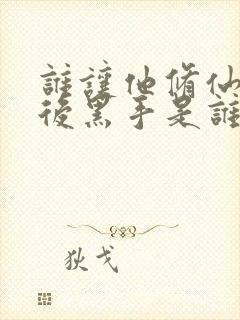 誰讓他脩仙
後黑手是誰
狄戈